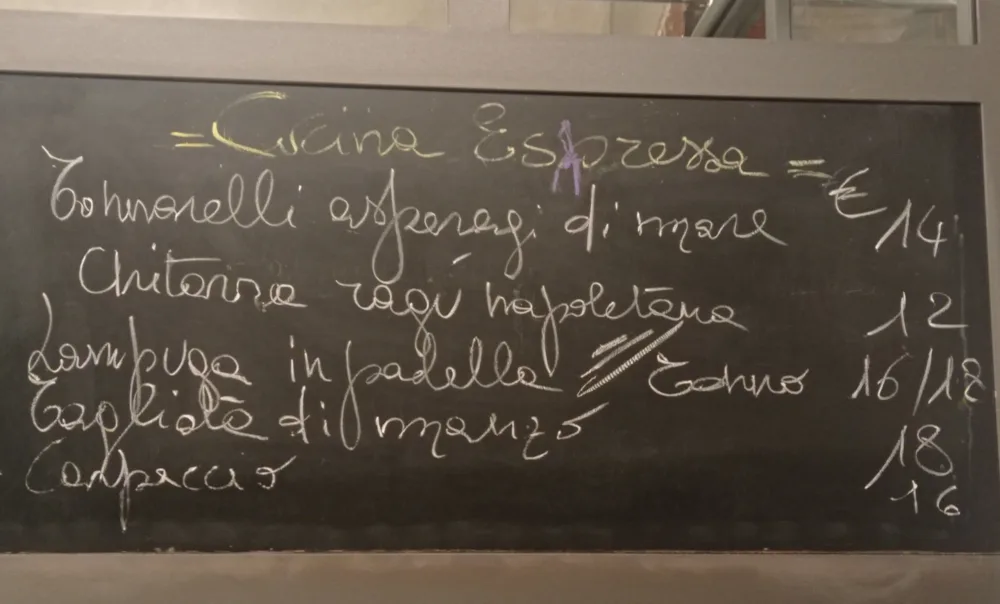 = Cucina Espressa = €
Tonnarelli asparagi di mare 14
Chitarra ragù napoletano 12
Lampuga in padella // Tonno 16/18
Tagliata di manzo 18
Carpaccio 16